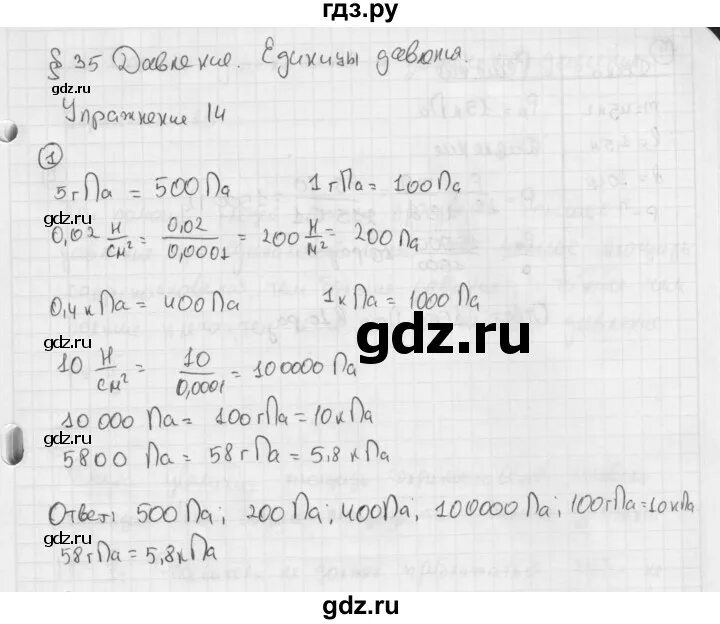 гдз.ру
§ 35 Давление. Единицы давления.
gdz.ru
Упражнение 14
①
5 гПа = 500 Па 1 гПа = 100 Па
gdz.ru
0,02 Н/см² = 0,02/0,0001 = 200 Н/м² = 200 Па
gdz.ru
0,4 кПа = 400 Па 1 кПа = 1000 Па
gdz.ru
gdz.ru
10 Н/см² = 10/0,0001 = 100000 Па
gdz.ru
10 000 Па = 100 гПа = 10 кПа
gdz.ru
5800 Па = 58 гПа = 5,8 кПа
Ответ: 500 Па; 200 Па, 400 Па; 100000 Па; 100 гПа = 10 кПа
gdz.ru
58 гПа = 5,8 кПа
gdz.ru